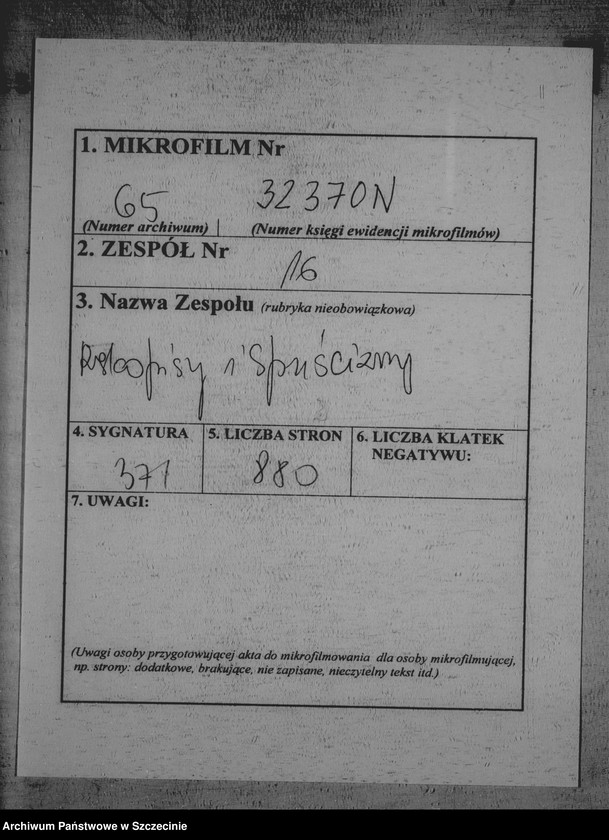 1. MIKROFILM Nr
65 32370N
(Numer archiwum) (Numer księgi ewidencji mikrofilmów)
2. ZESPÓŁ Nr
16
3. Nazwa Zespołu (rubryka nieobowiązkowa)
Rękopisy i Spuścizny
4. SYGNATURA 5. LICZBA STRON 6. LICZBA KLATEK
NEGATYWU:
371 880
7. UWAGI:
(Uwagi osoby przygotowującej akta do mikrofilmowania dla osoby mikrofilmującej,
np. strony: dodatkowe, brakujące, nie zapisane, nieczytelny tekst itd.)
Archiwum Państwowe w Szczecinie